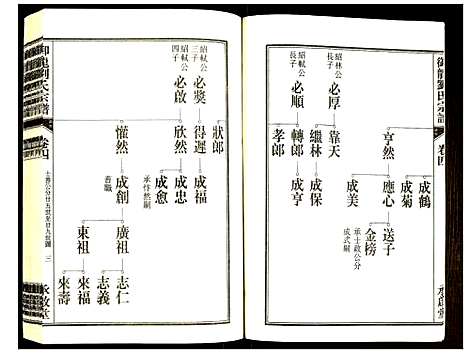 御龍劉氏宗譜
卷四
承啟堂
成鶴
成菊
亨然
應心
送子
承士政公分
成式嗣
金榜
成美
靠天
紹林公
長子
必厚
繼林
成保
轉郎
成亨
紹軾公
長子
必順
孝郎
狀郎
紹軾公
三子
必獎
得遲
成福
紹軾公
四子
必啟
欣然
成忠
成愈
承㤓然嗣
懽然
成創
善職
廣祖
志仁
志義
東祖
來福
來壽
御龍劉氏宗譜
卷四
士善公分廿五世至廿九世圖
三
承啟堂